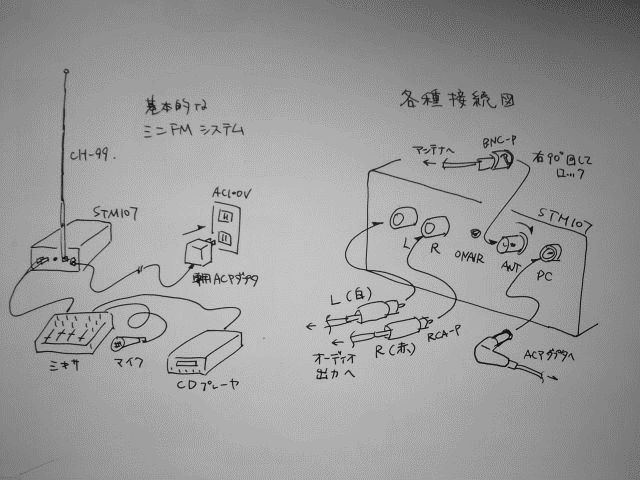 基本的な
ミニFMシステム
CH-99.
STM107
AC100V
専用ACアダプタ
ミキサ
マイク
CDプレーヤ
各種接続図
アンテナへ
BNC-P
右90°回して
ロック
STM107
L
R
ONAIR
ANT
PC
L(白)
R(赤)
RCA-P
オーディオ
出力へ
ACアダプタへ